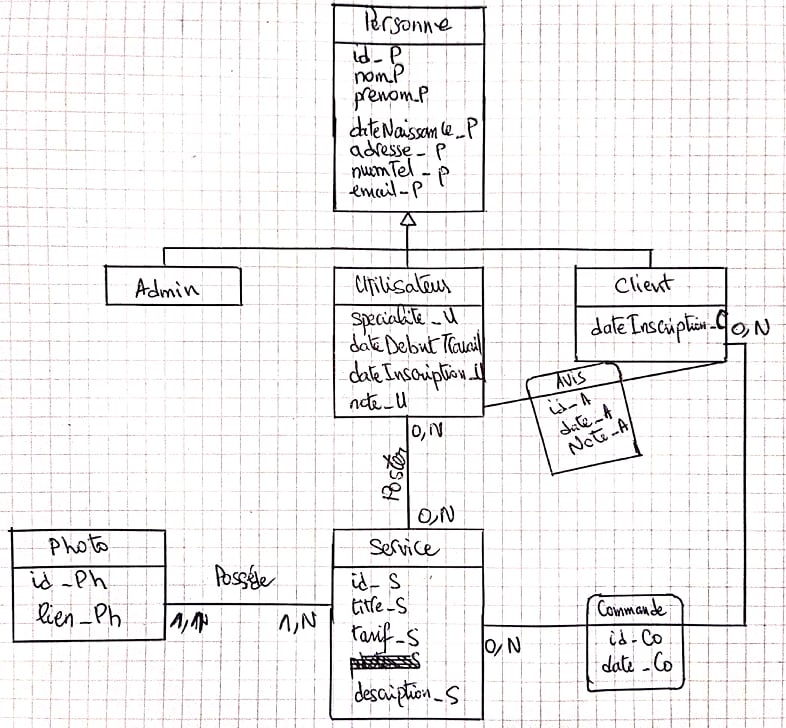 Personne
id_P
nom_P
prenom_P
dateNaissance_P
adresse_P
numTel_P
email_P
Admin
Utilisateur
Client
specialite_U
dateDebutTravail
dateInscription_U
note_U
dateInscription_C
0,N
AVIS
id_A
date_A
Note_A
0,N
Poster
0,N
Photo
id_Ph
lien_Ph
Possède
1,1
1,N
Service
id_S
titre_S
tarif_S
description_S
0,N
Commande
id_Co
date_Co